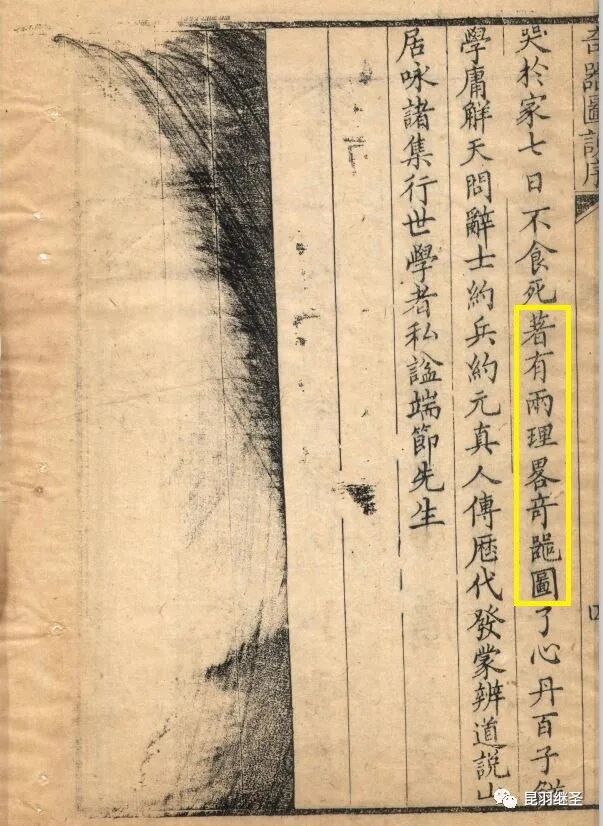 奇器圖說序
哭於家七日不食死著有兩理畧竒噐圖了心丹百子
學庸觧天問辭士約兵約元真人傳厯代發蒙辨道說山
居咏諸集行世學者私諡端節先生
昆羽继圣